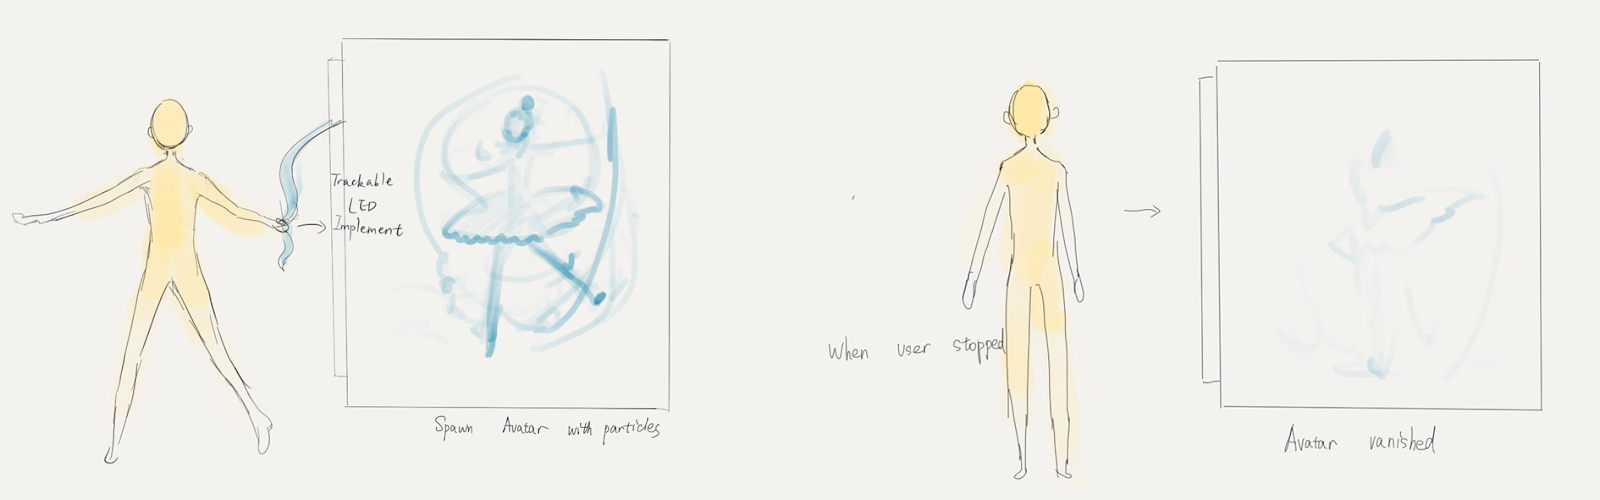 Trackable
LED
Implement
Spawn Avatar with particles
When user stopped
Avatar vanished